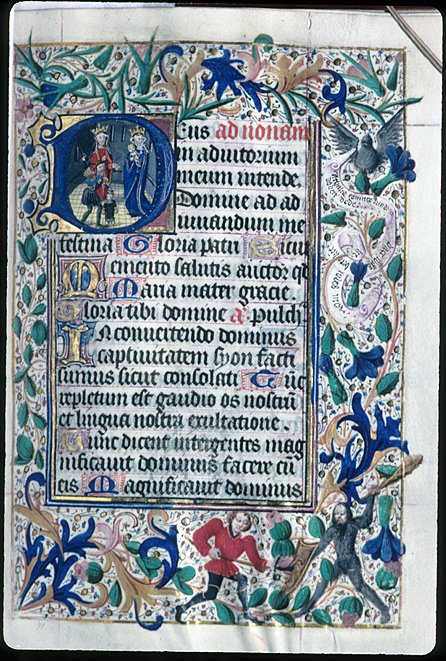 Deus ad nonam
in adiutorium
meum intende.
Domine ad ad
iuuandum me
festina Gloria patri Sicut
Memento salutis auctor qd
Maria mater gracie.
Gloria tibi domine añ. pulch
In conuertendo dominus
captiuitatem syon facti
sumus sicut consolati Tuc
repletum est gaudio os nostrū
et lingua nostra exultatione.
Tunc dicent inter gentes mag
nificauit dominus facere cū
eis Magnificauit dominus